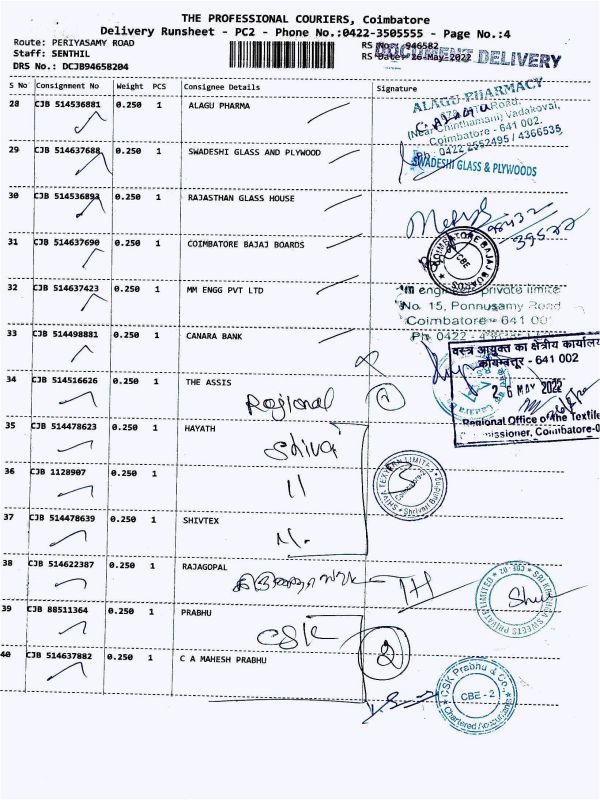 THE PROFESSIONAL COURIERS, Coimbatore
Delivery Runsheet - PC2 - Phone No.:0422-3505555 - Page No.:4
Route: PERIYASAMY ROAD
RS No.: 946582
Staff: SENTHIL
RS Date: 26-May-2022
DOCUMENT DELIVERY
DRS No.: DCJB94658204
S No Consignment No Weight PCS Consignee Details Signature
28 CJB 514536881 0.250 1 ALAGU PHARMA
ALAGU PHARMACY
Road,
(Near Chinthamani) Vadakovai,
Coimbatore - 641 002.
0422 2552495 / 4366535
29 CJB 514637688 0.250 1 SWADESHI GLASS AND PLYWOOD
SWADESHI GLASS & PLYWOODS
30 CJB 514536893 0.250 1 RAJASTHAN GLASS HOUSE
31 CJB 514637690 0.250 1 COIMBATORE BAJAJ BOARDS
COIMBATORE BAJAJ BOARDS
CBE
32 CJB 514637423 0.250 1 MM ENGG PVT LTD
private limited
No. 15, Ponnusamy Road
Coimbatore - 641 00
Ph 0422 -
33 CJB 514498881 0.250 1 CANARA BANK
वस्त्र आयुक्त का क्षेत्रीय कार्यालय
कोयम्बत्तूर - 641 002
2 6 MAY 2022
Regional Office of the Textile
Commissioner, Coimbatore-
34 CJB 514516626 0.250 1 THE ASSIS
Regional
35 CJB 514478623 0.250 1 HAYATH
Shiva
36 CJB 1128907 0.250 1
11
SHIVA TEXYARN LIMITED
Shrivari Building
37 CJB 514478639 0.250 1 SHIVTEX
38 CJB 514622387 0.250 1 RAJAGOPAL
SRI KRISHNA SWEETS PRIVATE LIMITED
CBE.02
39 CJB 88511364 0.250 1 PRABHU
CSK
2
40 CJB 514637882 0.250 1 C A MAHESH PRABHU
CSK Prabhu & Co.
CBE - 2
Chartered Accountants